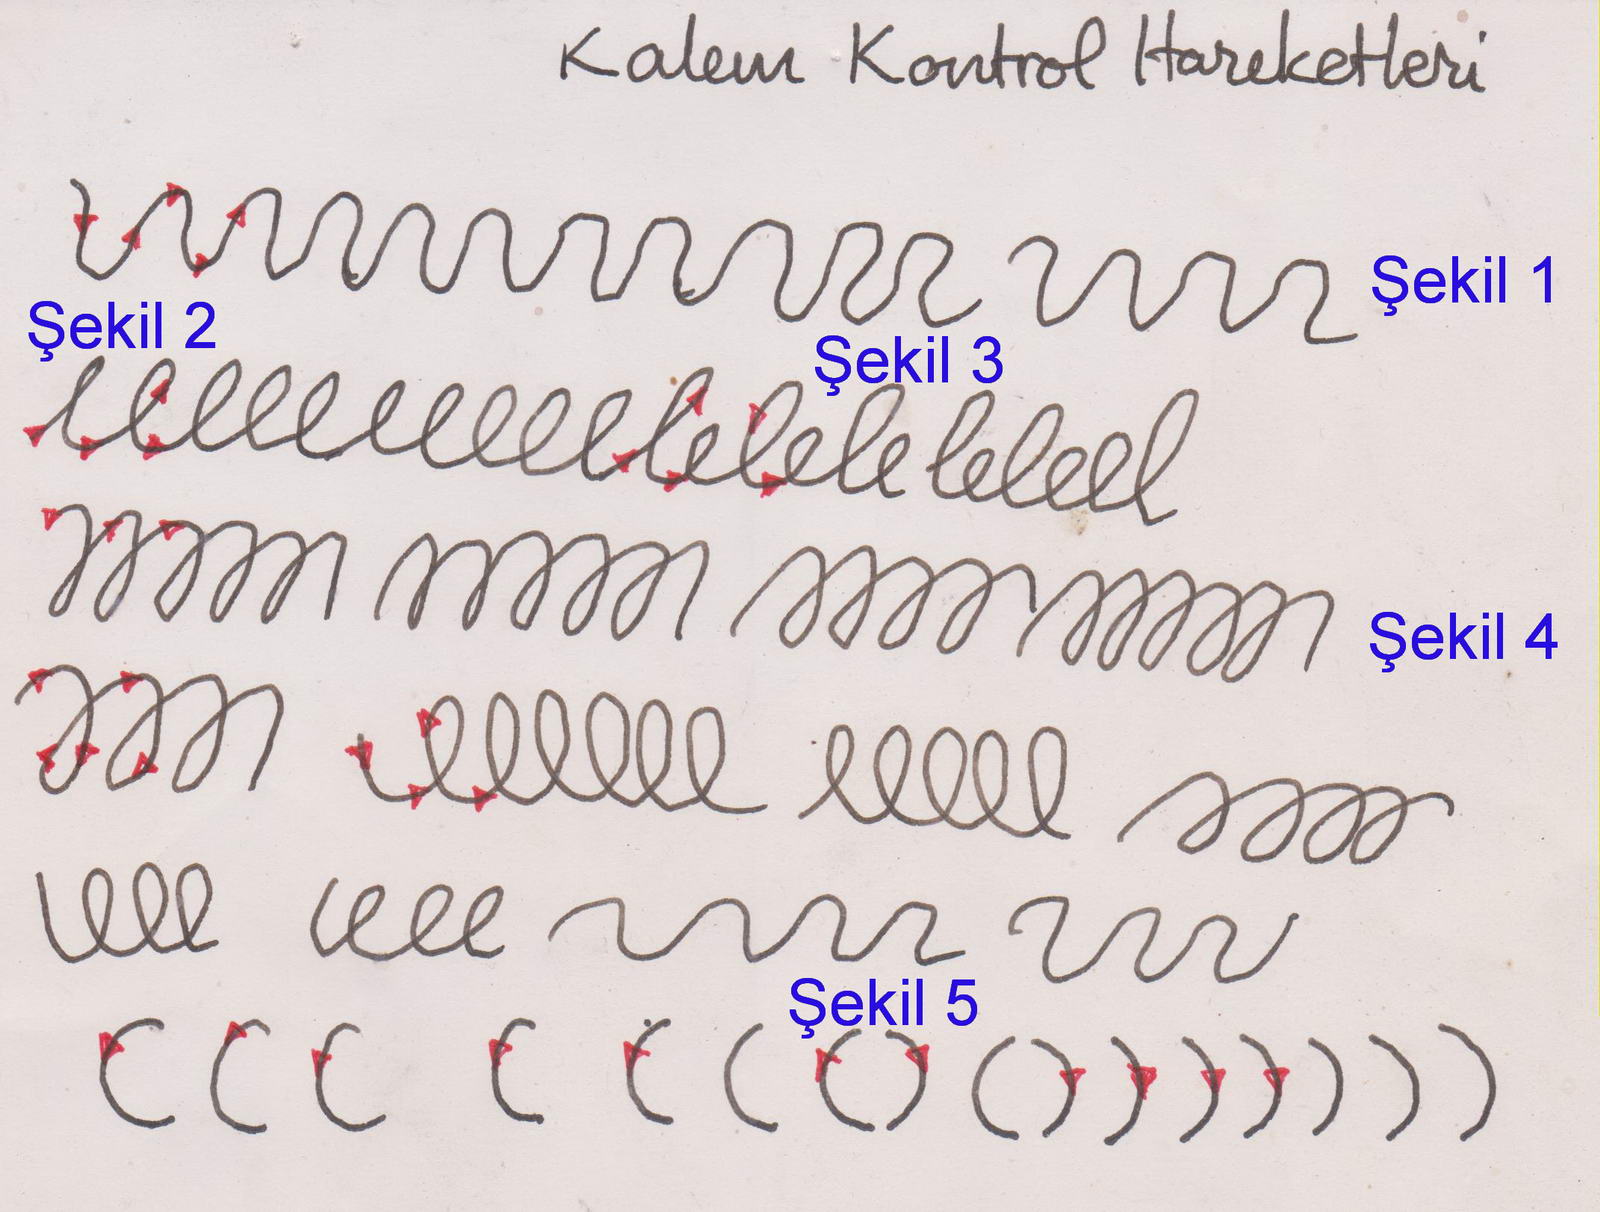 Kalem Kontrol Hareketleri
Şekil 1
Şekil 2
Şekil 3
Şekil 4
Şekil 5